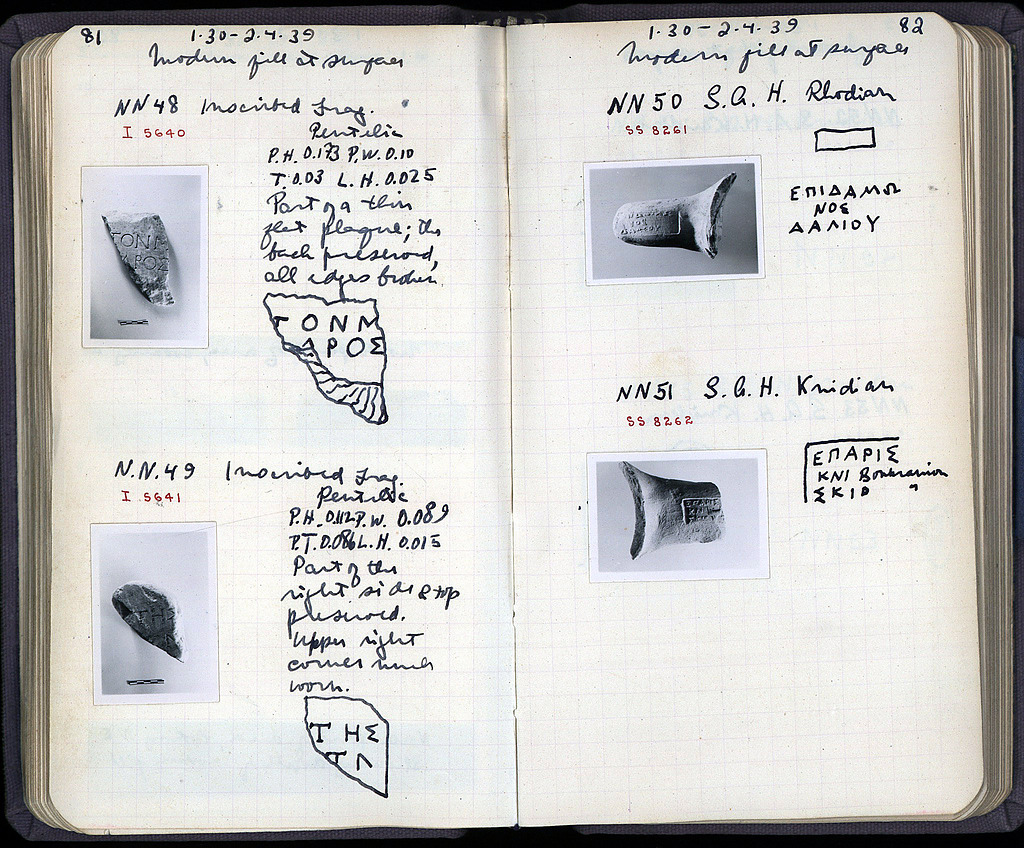 81
1·30-2·4·39
Modern fill at surface
NN48 Inscribed frag.
I 5640
Pentelic
P.H. 0.173 P.W. 0.10
T. 0.03 L.H. 0.025
Part of a thin
flat plaque; the
back preserved,
all edges broken.
ΤΟΝΜ
ΔΡΟΣ
N.N.49 Inscribed frag.
I 5641
Pentelic
P.H. 0.112 P.W. 0.089
P.T. 0.086 L.H. 0.015
Part of the
right side & top
preserved.
Upper right
corner much
worn.
ΤΗΣ
1·30-2·4·39
82
Modern fill at surface
NN50 S.A.H. Rhodian
SS 8261
ΕΠΙΔΑΜΩ
ΝΟΣ
ΔΑΛΙΟΥ
NN51 S.A.H. Knidian
SS 8262
ΕΠΑΡΙΣ
ΚΝΙ Boukranion
ΣΚΙΟ "